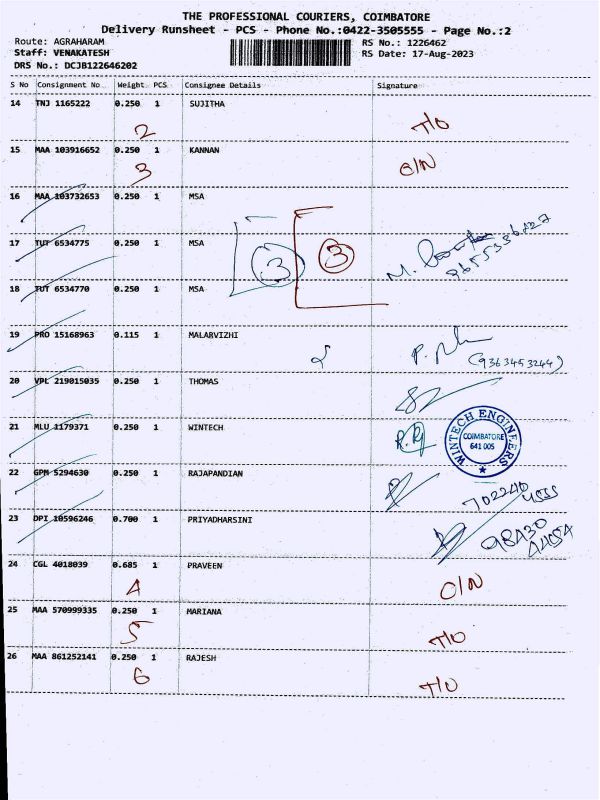 THE PROFESSIONAL COURIERS, COIMBATORE
Delivery Runsheet - PCS - Phone No.:0422-3505555 - Page No.:2
Route: AGRAHARAM
RS No.: 1226462
Staff: VENAKATESH
RS Date: 17-Aug-2023
DRS No.: DCJB122646202
S No Consignment No Weight PCS Consignee Details Signature
14 TNJ 1165222 0.250 1 SUJITHA
2 T/O
15 MAA 103916652 0.250 1 KANNAN
3 O/N
16 MAA 103732653 0.250 1 MSA
17 TUT 6534775 0.250 1 MSA
3 3 M.
18 TUT 6534770 0.250 1 MSA
19 PRO 15168963 0.115 1 MALARVIZHI
(9363453244)
20 VPL 219015035 0.250 1 THOMAS
21 MLU 1179371 0.250 1 WINTECH
WINTECH ENGINEERS
COIMBATORE
641 005
22 GPM 5294630 0.250 1 RAJAPANDIAN
23 DPI 10596246 0.700 1 PRIYADHARSINI
24 CGL 4018039 0.685 1 PRAVEEN
4 O/N
25 MAA 570999335 0.250 1 MARIANA
5 T/O
26 MAA 861252141 0.250 1 RAJESH
6 T/O